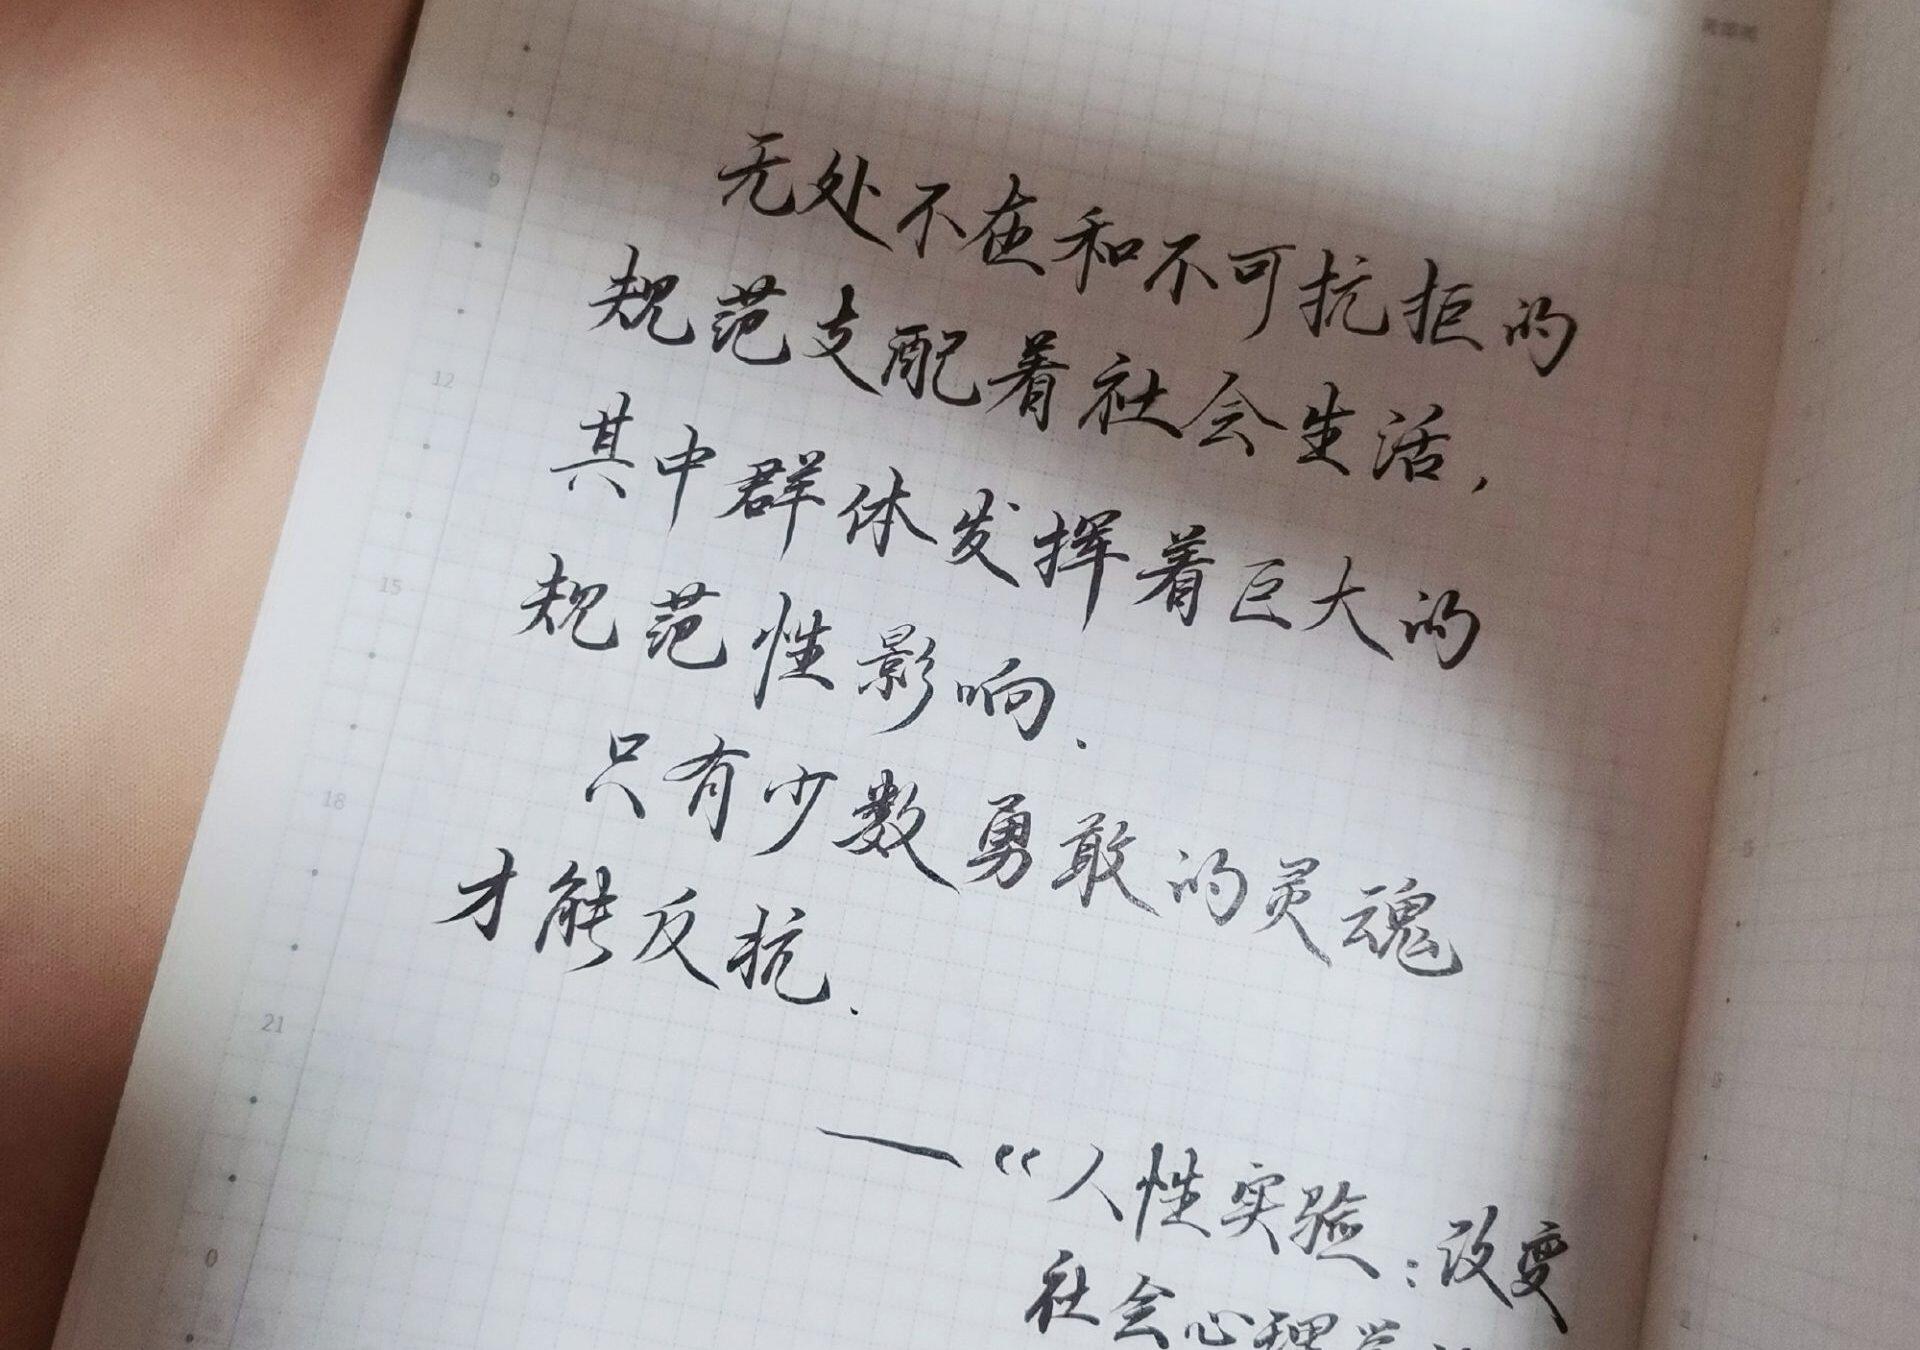 无处不在和不可抗拒的
规范支配着社会生活,
其中群体发挥着巨大的
规范性影响.
只有少数勇敢的灵魂
才能反抗.
—《人性实验:改变
社会心理学
9
12
15
18
21
0